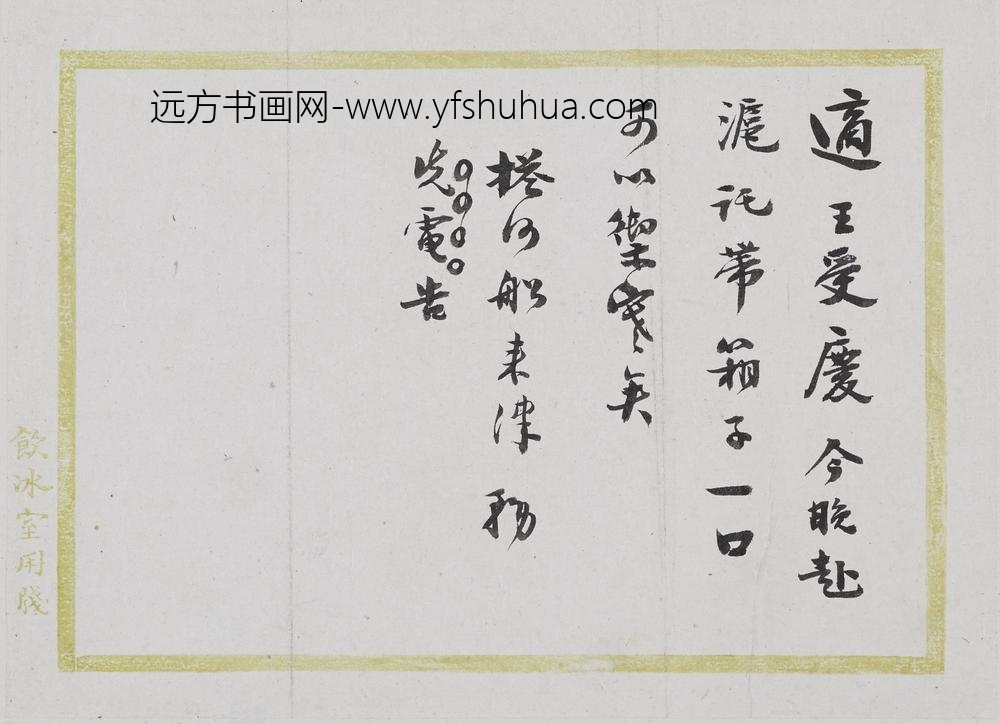 適王受慶今晚赴
滬託帶箱子一口
可以禦寒矣
搭何船来津 務
先電告
飲冰室用牋
远方书画网-www.yfshuhua.com